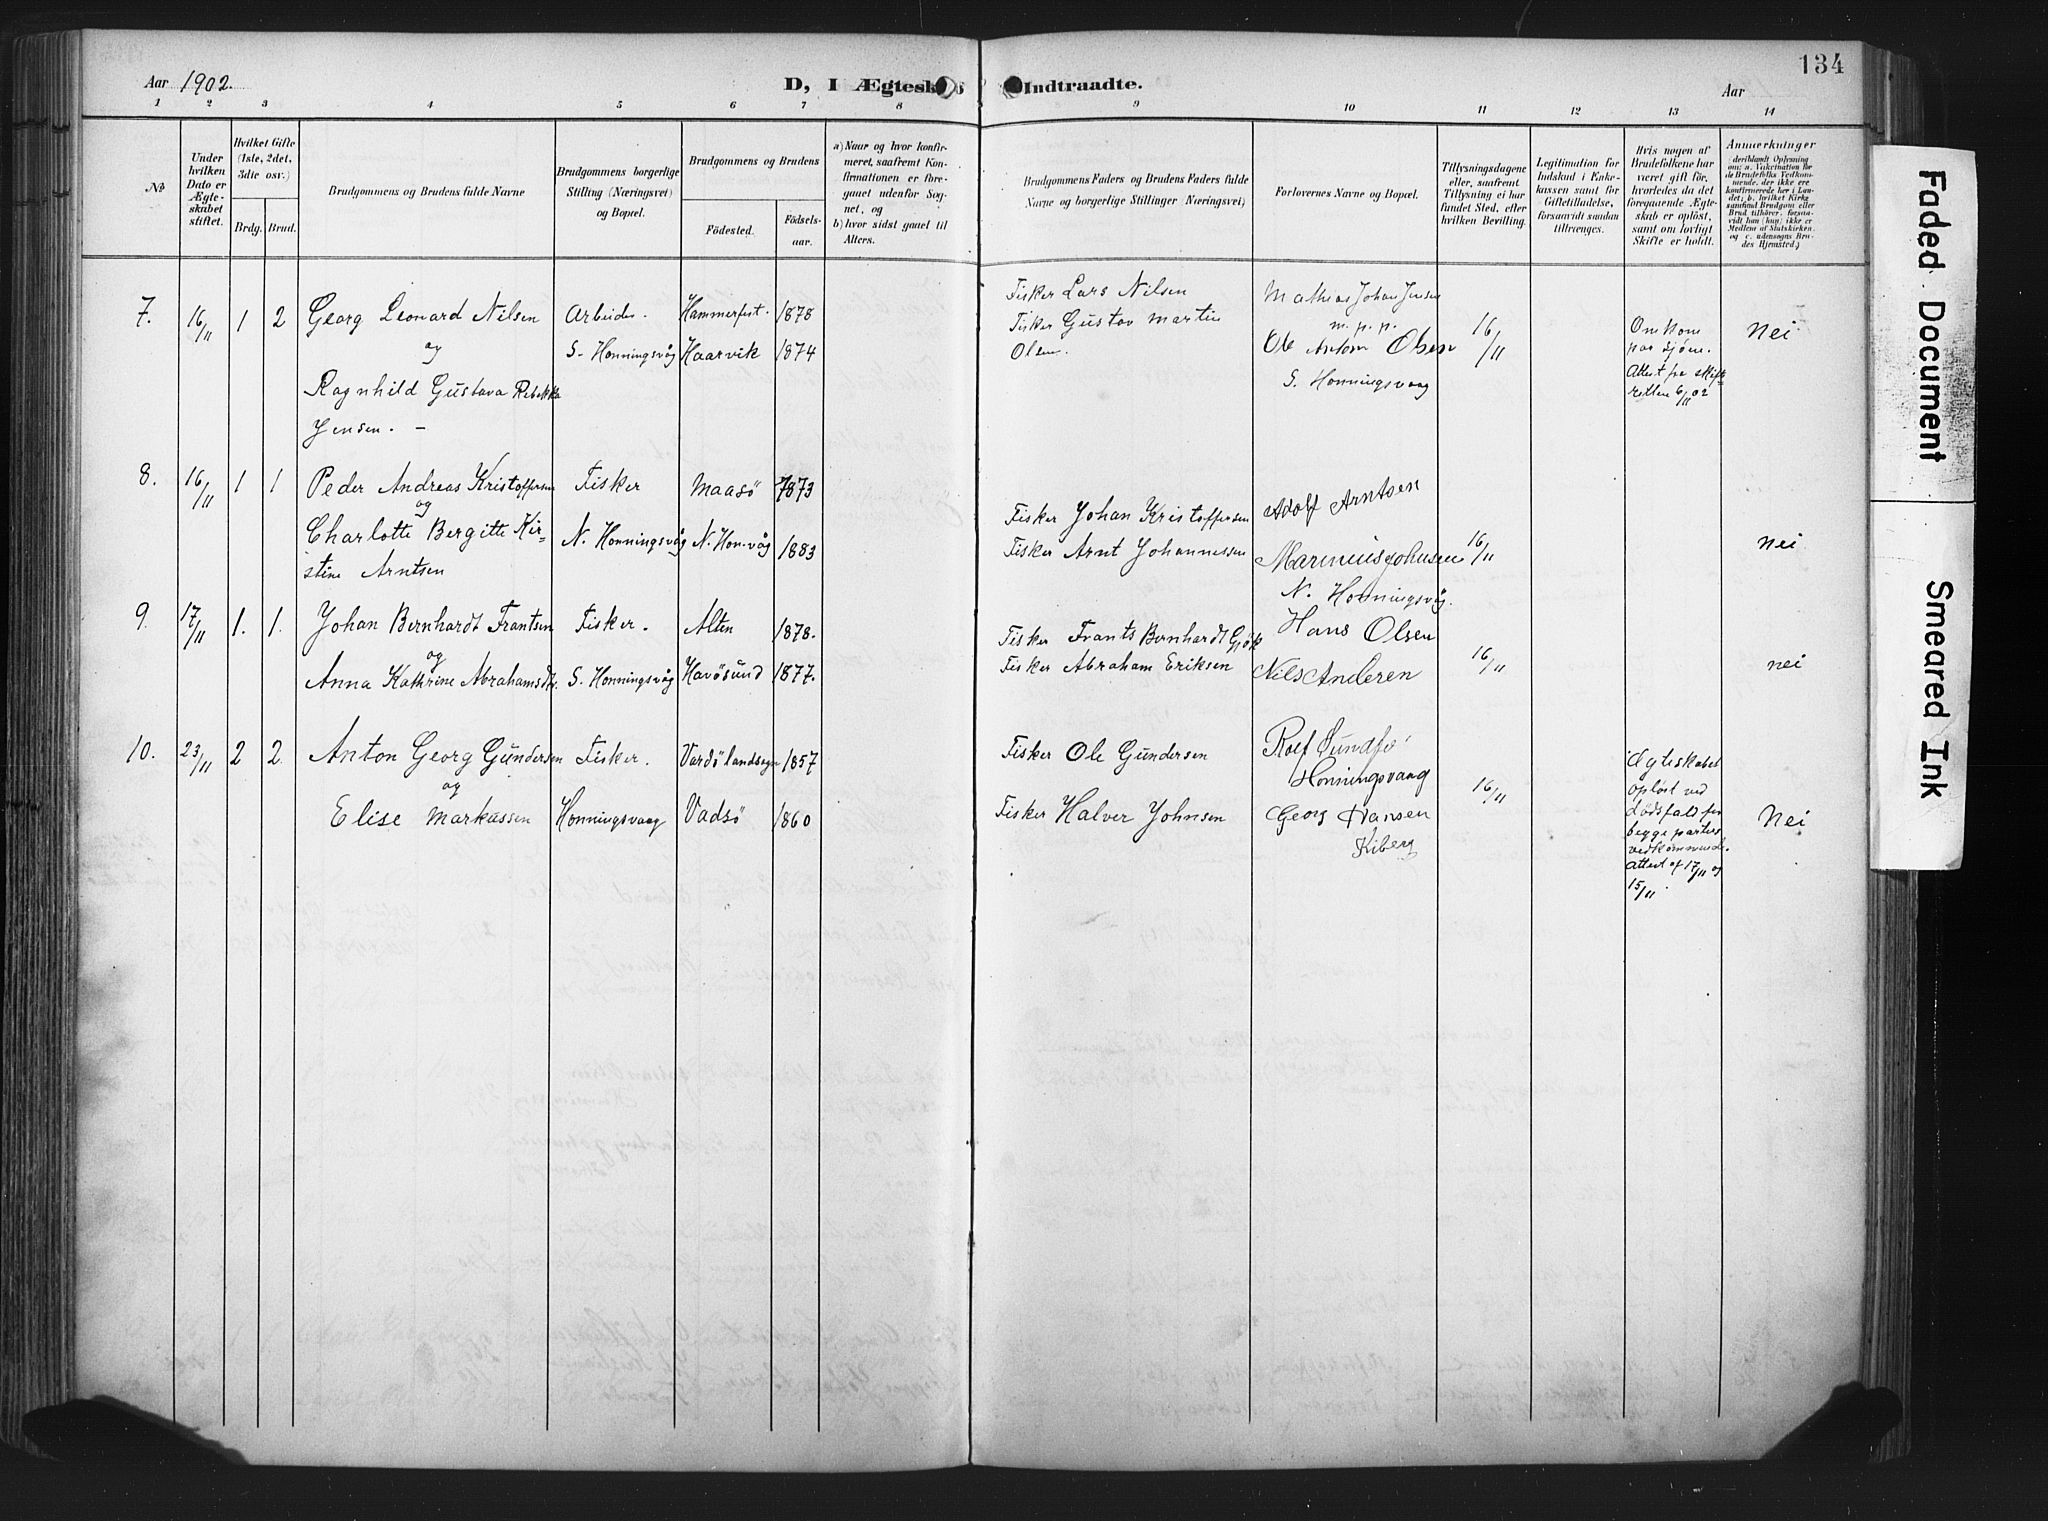 134
Aar 1902.
D, I Ægtesk Indtraadte.
Aar
1 2 3 4 5 6 7 8 9 10 11 12 13 14
No
Under hvilken Dato er Ægteskabet stiftet.
Hvilket Gifte (1ste, 2det, 3die osv.)
Brdg. Brud.
Brudgommens og Brudens fulde Navne
Brudgommens borgerlige Stilling (Næringsvei) og Bopæl.
Brudgommens og Brudens
Fødested.
Fødselsaar.
a) Naar og hvor konfirmeret, saafremt Konfirmationen er foregaaet udenfor Sognet, og
b) hvor sidst gaaet til Alters.
Brudgommens Faders og Brudens Faders fulde Navne og borgerlige Stillinger Næringsvei)
Forlovernes Navne og Bopæl.
Tillysningsdagene eller, saafremt Tillysning ei har fundet Sted, efter hvilken Bevilling.
Legitimation for Indskud i Enkekassen samt for Giftetilladelse, forsaavidt saadan tiltrænges.
Hvis nogen af Brudefolkene har været gift før, hvorledes da det foregaaende Ægteskab er opløst, samt om lovligt Skifte er holdt.
Anmærkninger
(deriblandt Oplysning om: a. Vakcination for de Brudefolks Vedkommende, der ikke ere konfirmerede her i Landet; b. hvilket Kirkesamfund Brudgom eller Brud tilhører, forsaavidt han (hun) ikke er Medlem af Statskirken, og c. udensogns Brudes Hjemsted.)
7. 16/11 1 2 Georg Leonard Nilsen Arbeider. Hammerfest. 1878
og S. Honningsvåg Haarvik 1874
Ragnhild Gustava Rebekka
Jensen. -
Fisker Lars Nilsen
Fisker Gustav Martin
Olsen.
Mathias Johan Jensen
m. p. p.
Ole Anton Olsen
S. Honningsvaag
16/11
Omkom
paa sjøen.
Attest fra skifte
retten 6/11 02
Nei
8. 16/11 1 1 Peder Andreas Kristoffersen Fisker Maasö 1873
og
Charlotte Bergitte Kir- N. Honningsvåg N. Honvåg 1883
stine Arntsen
Fisker Johan Kristoffersen
Fisker Arnt Johannessen
Adolf Arntsen
Marinius Johnsen
N. Honningsvåg.
16/11
nei
9. 17/11 1. 1. Johan Bernhardt Frantsen Fisker. Alten 1878.
og
Anna Kathrine Abrahamsdtr. S. Honningsvåg Havösund 1877.
Fisker Frants Bernhardt
Fisker Abraham Eriksen
Hans Olsen
Nils Anderen
16/11
nei
10. 23/11 2 2. Anton Georg Gundersen Fisker. Vardölandsogn 1857
og
Elise Markussen Honningsvaag Vadsö 1860
Fisker Ole Gundersen
Fisker Halver Johnsen
Rolf Sundfö
Honningsvaag
Georg Hansen
Kiberg
16/11
Egteskabet
opløst ved
dödsfald for
begge parters
vedkommende.
Attest af 17/11 og
15/11
Nei
Faded Document
Smeared Ink